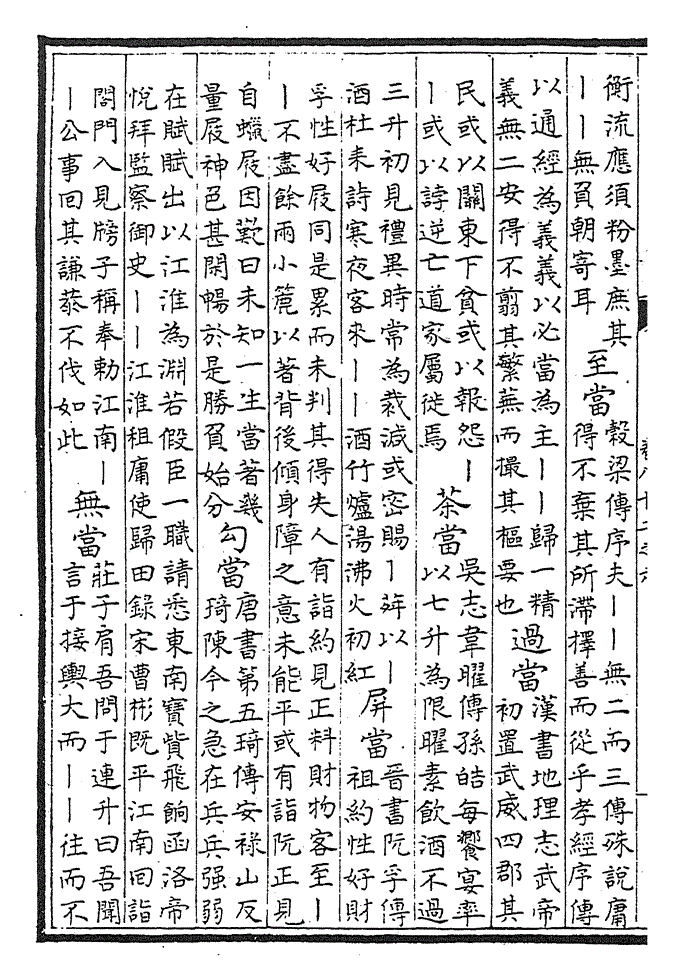 衡流應須粉墨庶其
丨丨無負朝寄耳
至當
榖梁傳序夫丨丨無二而三傳殊說庸
得不棄其所滯擇善而從乎孝經序傳
以通經為義義以必當為主丨丨歸一精
義無二安得不翦其繁蕪而撮其樞要也
過當
漢書地理志武帝
初置武威四郡其
民或以關東下貧或以報怨丨
丨或以誖逆亡道家屬徙焉
茶當
吳志韋曜傳孫皓每饗宴率
以七升為限曜素飲酒不過
三升初見禮異時常為裁減或密賜丨荈以丨
酒杜耒詩寒夜客來丨丨酒竹爐湯沸火初紅
屏當
晉書阮孚傳
祖約性好財
孚性好屐同是累而未判其得失人有詣約見正料財物客至丨
丨不盡餘兩小簏以著背後傾身障之意未能平或有詣阮正見
自蠟屐因歎曰未知一生當著幾
量屐神色甚閑暢於是勝負始分
勾當
唐書第五琦傳安祿山反
琦陳今之急在兵兵强弱
在賦賦出以江淮為淵若假臣一職請悉東南寶貲飛餉函洛帝
悅拜監察御史丨丨江淮租庸使歸田錄宋曹彬既平江南回詣
閤門入見牓子稱奉勅江南丨
丨公事回其謙恭不伐如此
無當
莊子肩吾問于連升曰吾聞
言于接輿大而丨丨往而不